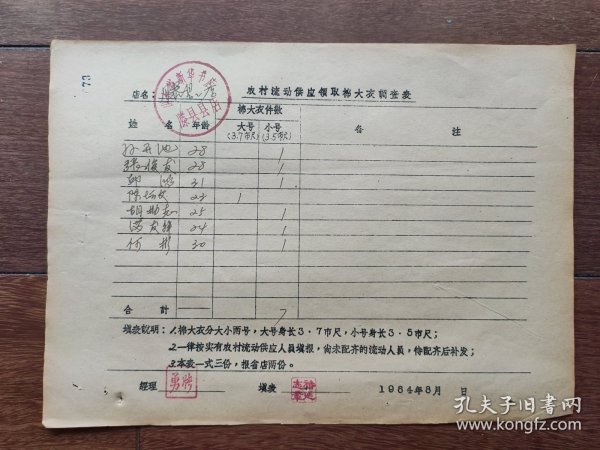 73
店名：
农村流动供应领取棉大衣调查表
姓 名 年龄 棉大衣件数 备 注
大号 小号
(3.7市尺) (3.5市尺)
28 1
28 1
郭 31 1
陈 23 1
胡 25 1
24 1
何彬 30 1
合 計 7
填表说明：1.棉大衣分大小两号，大号身长3·7市尺，小号身长3·5市尺；
2.一律按实有农村流动供应人员填报，尚未配齐的流动人员，待配齐后补发；
3.本表一式三份，报省店两份。
经理 填表 1964年8月 日
孔夫子旧书网
www.kongfz.com